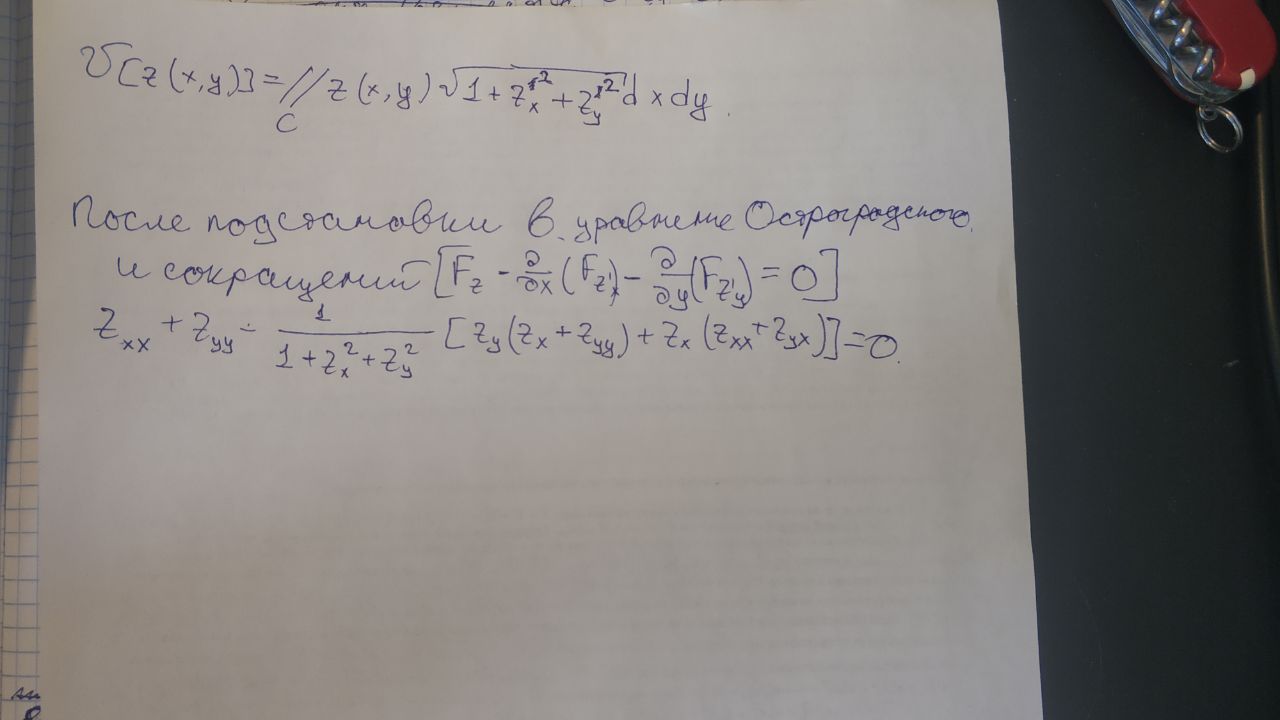 V[z(x,y)] = ∬ z(x,y) √(1 + z'ₓ² + z'ᵧ²) d x dy.
C
После подстановки в уравнение Остроградского.
и сокращений [F_z - ∂/∂x (F_z'ₓ) - ∂/∂y (F_z'ᵧ) = 0]
z_xx + z_yy - 1/(1 + z_x² + z_y²) [z_y (z_x + z_yy) + z_x (z_xx + z_yx)] = 0.